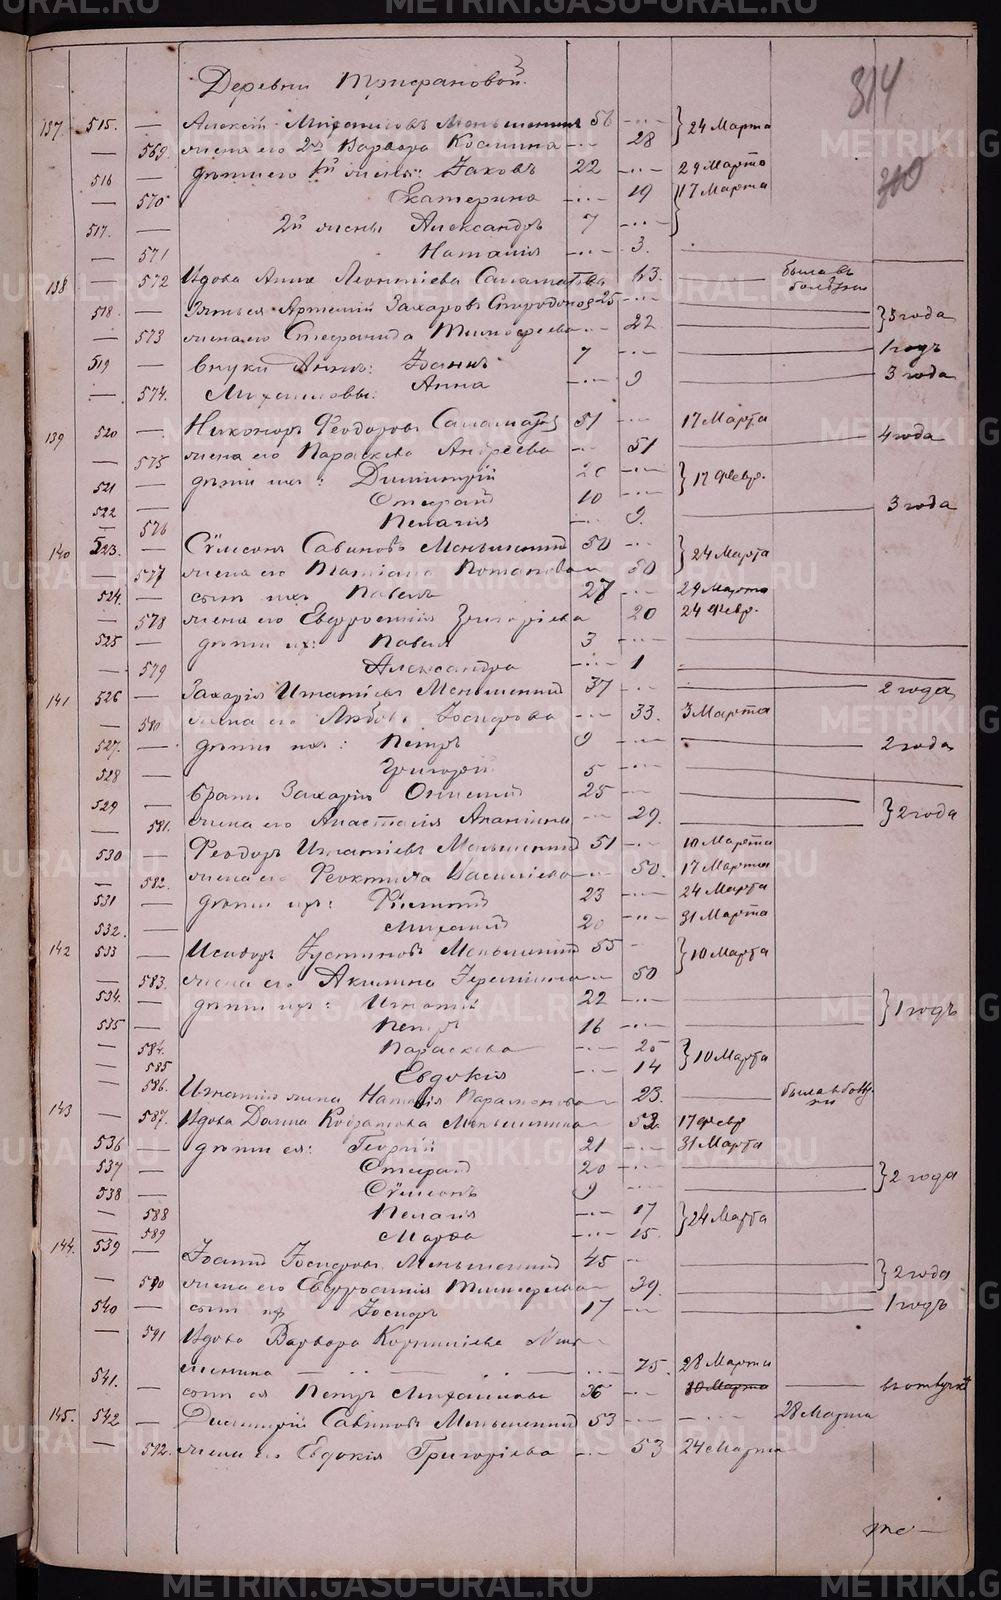 Деревни Трифановой
314
137. 515. — Алексій Михаиловъ Меньшенинъ 56 — 24 Марта
— 569. жена его 2я Варвара Космина — 28
516 — дѣти его 1й жены: Іаковъ 22 — 29 Марта
— 570 Екатерина — 19 17 Марта
517. — 2й жены Александръ 7 —
— 571 Наталія — 3.
138 — 572 Вдова Анна Леонтіева 63. — была въ болѣзни
518 — Зять ея Артемій Захаровъ 25 — } 3 года
— 573 жена его Стефанида Тимофеева — 22
519 — внуки Анны: Іоаннъ 7 — 1 годъ
— 574. Михаиловы: Анна — 9 3 года
139 520 — Никаноръ Феодоровъ 51 — 17 Марта
— 575 жена его Параскева Андреева — 51 4 года
521 — дѣти их: Димитрій — } 17 Февр.
522 — Стефанъ 10 —
— 576 Пелагія — 9. 3 года
140 523. — Сѵмеонъ Савиновъ Меньшенинъ 50 — } 24 Марта
— 577 жена его Татіана Потапова — 50
524. — сынъ ихъ Павелъ 27 — 29 Марта
— 578 жена его Евфросинія Григоріева 20 24 Февр.
525 — дѣти их: Павелъ 3 —
— 579 Александра — 1
141 526 — Захарія Игнатіевъ Меньшенинъ 37 — 2 года
— 580 жена его Любовь Іосифова — 33. 3 Марта
527. — дѣти их: Петръ 9 — 2 года
528 — Григорій 5 —
529 — братъ Захаріи 25 — } 2 года
— 581. жена его Анастасія Ананіина — 29.
530 — Феодоръ Игнатіевъ Меньшенинъ 51 — 10 Марта
— 582. жена его Феоктиста Василіева — 50. 17 Марта
531 — дѣти их: 23 — 24 Марта
532. — Михаилъ 20 — 31 Марта
142 533 — Исидоръ Іустиновъ Меньшенинъ 55 — } 10 Марта
— 583. жена его Акилина — 50
534. — дѣти их: Игнатій 22 — } 1 годъ
535 — Петръ 16 —
— 584. Параскева — 25 } 10 Марта
— 585 Евдокія — 14
— 586. Игнатія жена Наталія Парамонова — 23. — была в бол
143 — 587. Вдова Меньшенина — 52. 17 Февр
536 — дѣти ея: Георгій 21 — 31 Марта
537 — Стефанъ 20 — } 2 года
538 — Сѵмеонъ 9 —
— 588 Пелагія — 17 } 24 Марта
— 589 Марѳа — 15.
144. 539 — Іоаннъ Іосифовъ Меньшенинъ 45 — } 2 года
— 590 жена его Евфросинія Тимофеева — 39.
540 — сынъ их Іосифъ 17 — 1 годъ
— 591 Вдова Варвара Корниліева Мен
шенина — 75. 28 Марта
541. — сынъ ея Петръ Михаиловъ 36 — 30 Марта — в отлучкѣ
145. 542 — Димитрій Савиновъ Меньшенинъ 53 — 28 Марта
— 592. жена его Евдокія Григоріева — 53 24 Марта
METRIKI.GASO-URAL.RU